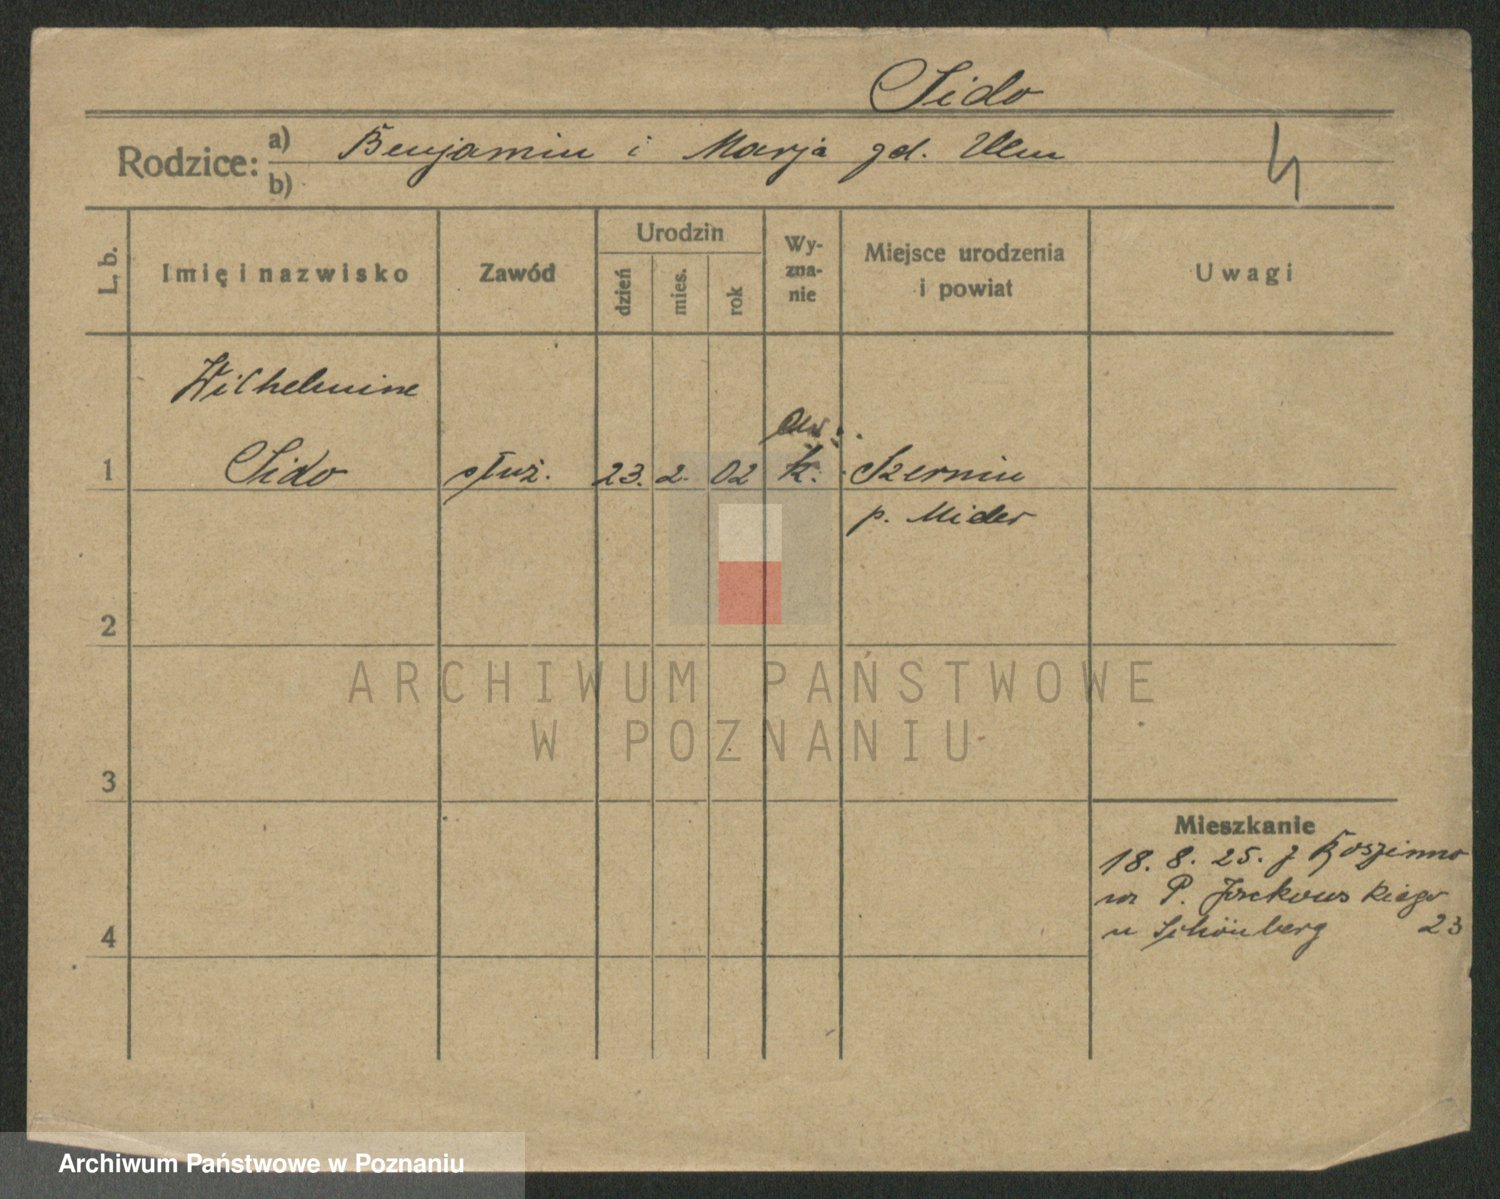 Sido
Rodzice: a) Benjamin i Marja gd. Ulm
b)
L. b.
Imię i nazwisko
Zawód
Urodzin
dzień
mies.
rok
Wy-
zna-
nie
Miejsce urodzenia
i powiat
Uwagi
Wilhelmine
ew.
1 Sido służ. 23. 2. 02 k. Szernin
p. Mider
2
3
4
Mieszkanie
18. 8. 25. z
P. Jackowskiego
u Schönberg 23
ARCHIWUM PAŃSTWOWE
W POZNANIU
Archiwum Państwowe w Poznaniu